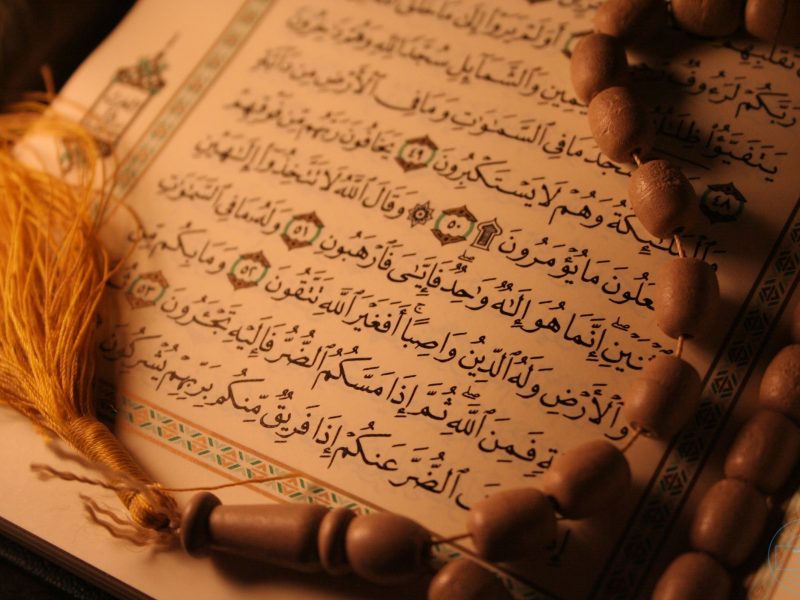 رَبَّكُمْ لَرَءُوفٌ أَوَلَمْ يَرَوْا۟ إِلَىٰ مَا خَلَقَ
يَتَفَيَّؤُا۟ ظِلَـٰلُهُۥ ٱلْيَمِينِ وَٱلشَّمَآئِلِ سُجَّدًا لِّلَّهِ وَهُمْ دَٰخِرُونَ
٤٨ يَسْجُدُ مَا فِى ٱلسَّمَـٰوَٰتِ وَمَا فِى ٱلْأَرْضِ مِن دَآبَّةٍ
وَٱلْمَلَـٰٓئِكَةُ وَهُمْ لَا يَسْتَكْبِرُونَ ٤٩ يَخَافُونَ رَبَّهُم مِّن فَوْقِهِمْ
وَيَفْعَلُونَ مَا يُؤْمَرُونَ ۩ ٥٠ ۞ وَقَالَ ٱللَّهُ لَا تَتَّخِذُوٓا۟ إِلَـٰهَيْنِ
ٱثْنَيْنِ ۖ إِنَّمَا هُوَ إِلَـٰهٌ وَٰحِدٌ ۖ فَإِيَّـٰىَ فَٱرْهَبُونِ ٥١ وَلَهُۥ مَا فِى ٱلسَّمَـٰوَٰتِ
وَٱلْأَرْضِ وَلَهُ ٱلدِّينُ وَاصِبًا ۚ أَفَغَيْرَ ٱللَّهِ تَتَّقُونَ ٥٢ وَمَا بِكُم مِّن
فَمِنَ ٱللَّهِ ۖ ثُمَّ إِذَا مَسَّكُمُ ٱلضُّرُّ فَإِلَيْهِ تَجْـَٔرُونَ ٥٣
ٱلضُّرَّ عَنكُمْ إِذَا فَرِيقٌ مِّنكُم بِرَبِّهِمْ يُشْرِكُونَ